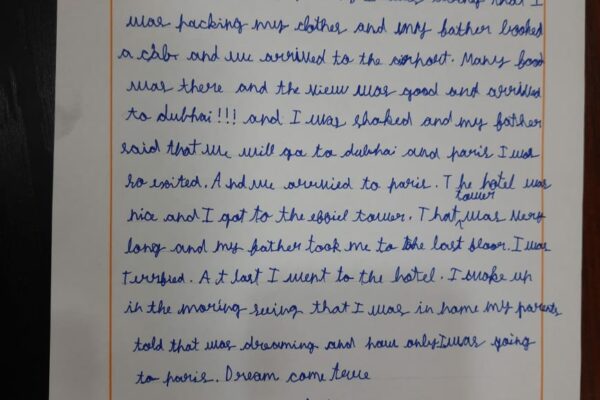 was packing my clothes and my father booked
a cab and we arrived to the airport. Many food
was there and the view was good and arrived
to dubhai!!! and I was shoked and my father
said that we will go to dubhai and paris I was
so exited. And we arrived to paris. The hotel was
nice and I got to the effiel tower. That tower was very
long and my father took me to the last floor. I was
Terrfied. At last I went to the hotel. I woke up
in the moring seeing that I was in home my parents
told that was dreaming and now only I was going
to paris. Dream come true